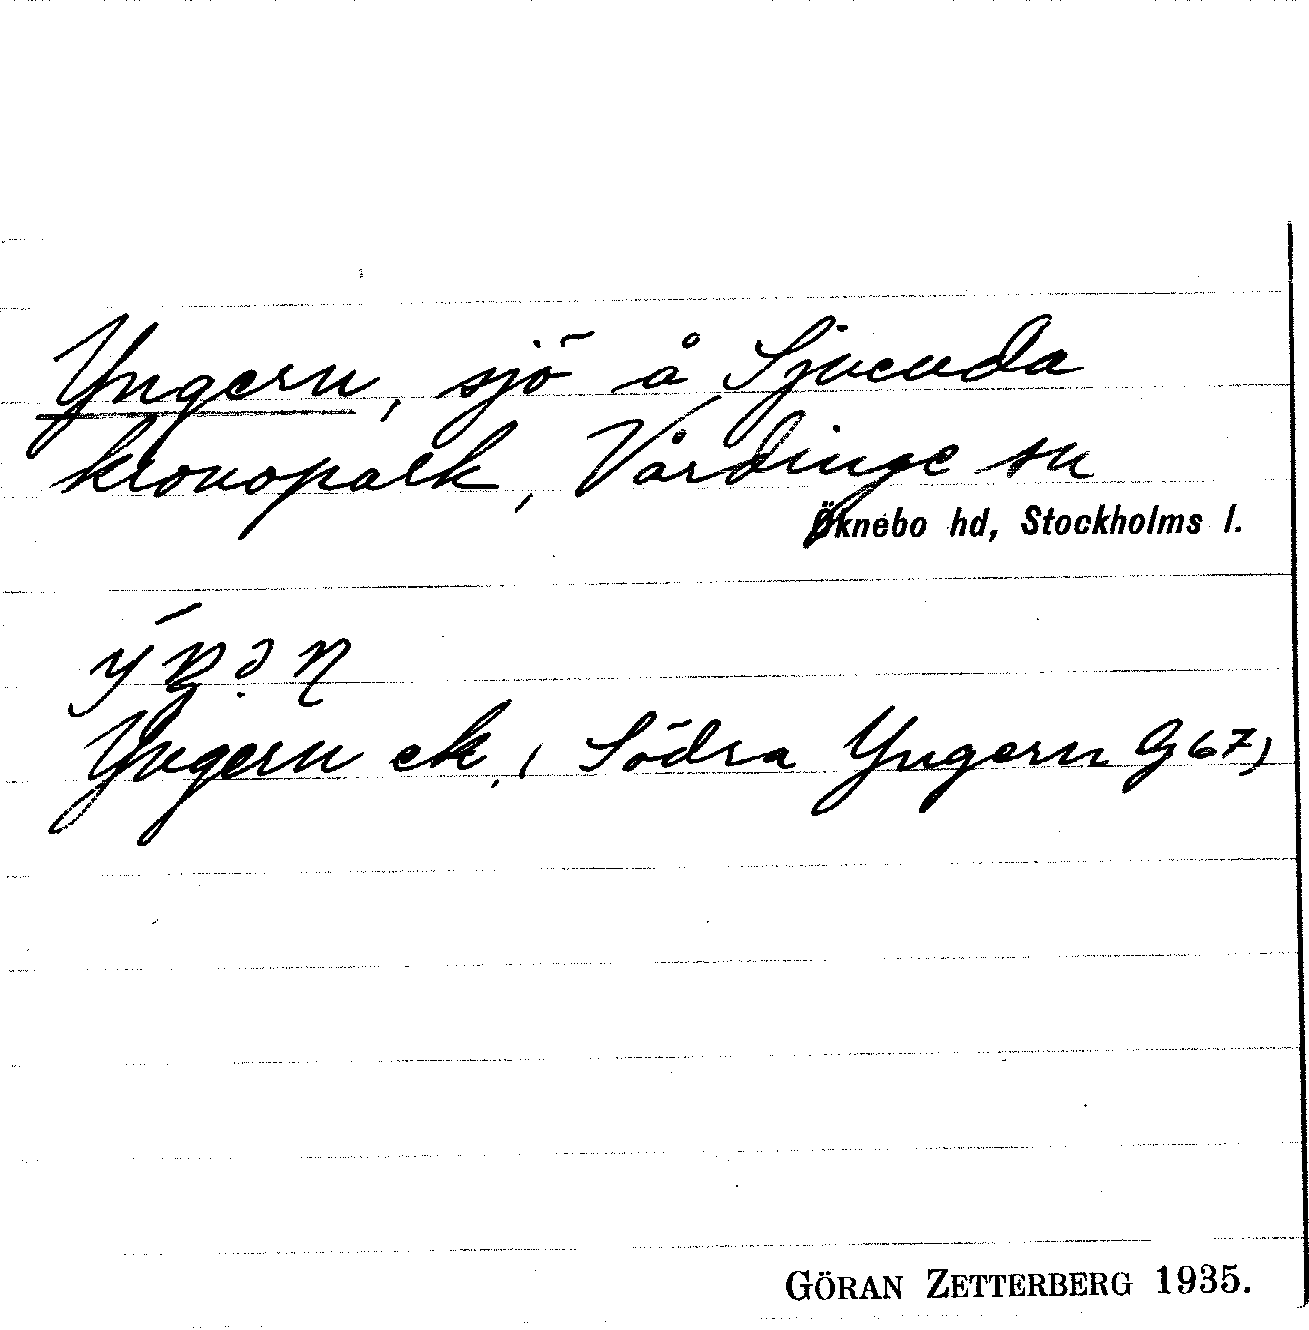 Yngern, sjö å Sjuenda
kronopark, Vårdinge sn
Öknebo hd, Stockholms l.
Yngern ek., Södra Yngern G67)
GÖRAN ZETTERBERG 1935.